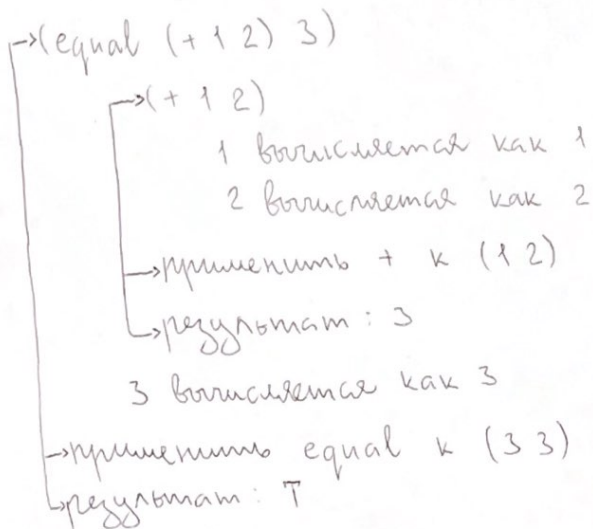 →(equal (+ 1 2) 3)
→(+ 1 2)
1 вычисляется как 1
2 вычисляется как 2
→применить + к (1 2)
→результат: 3
3 вычисляется как 3
→применить equal к (3 3)
→результат: T